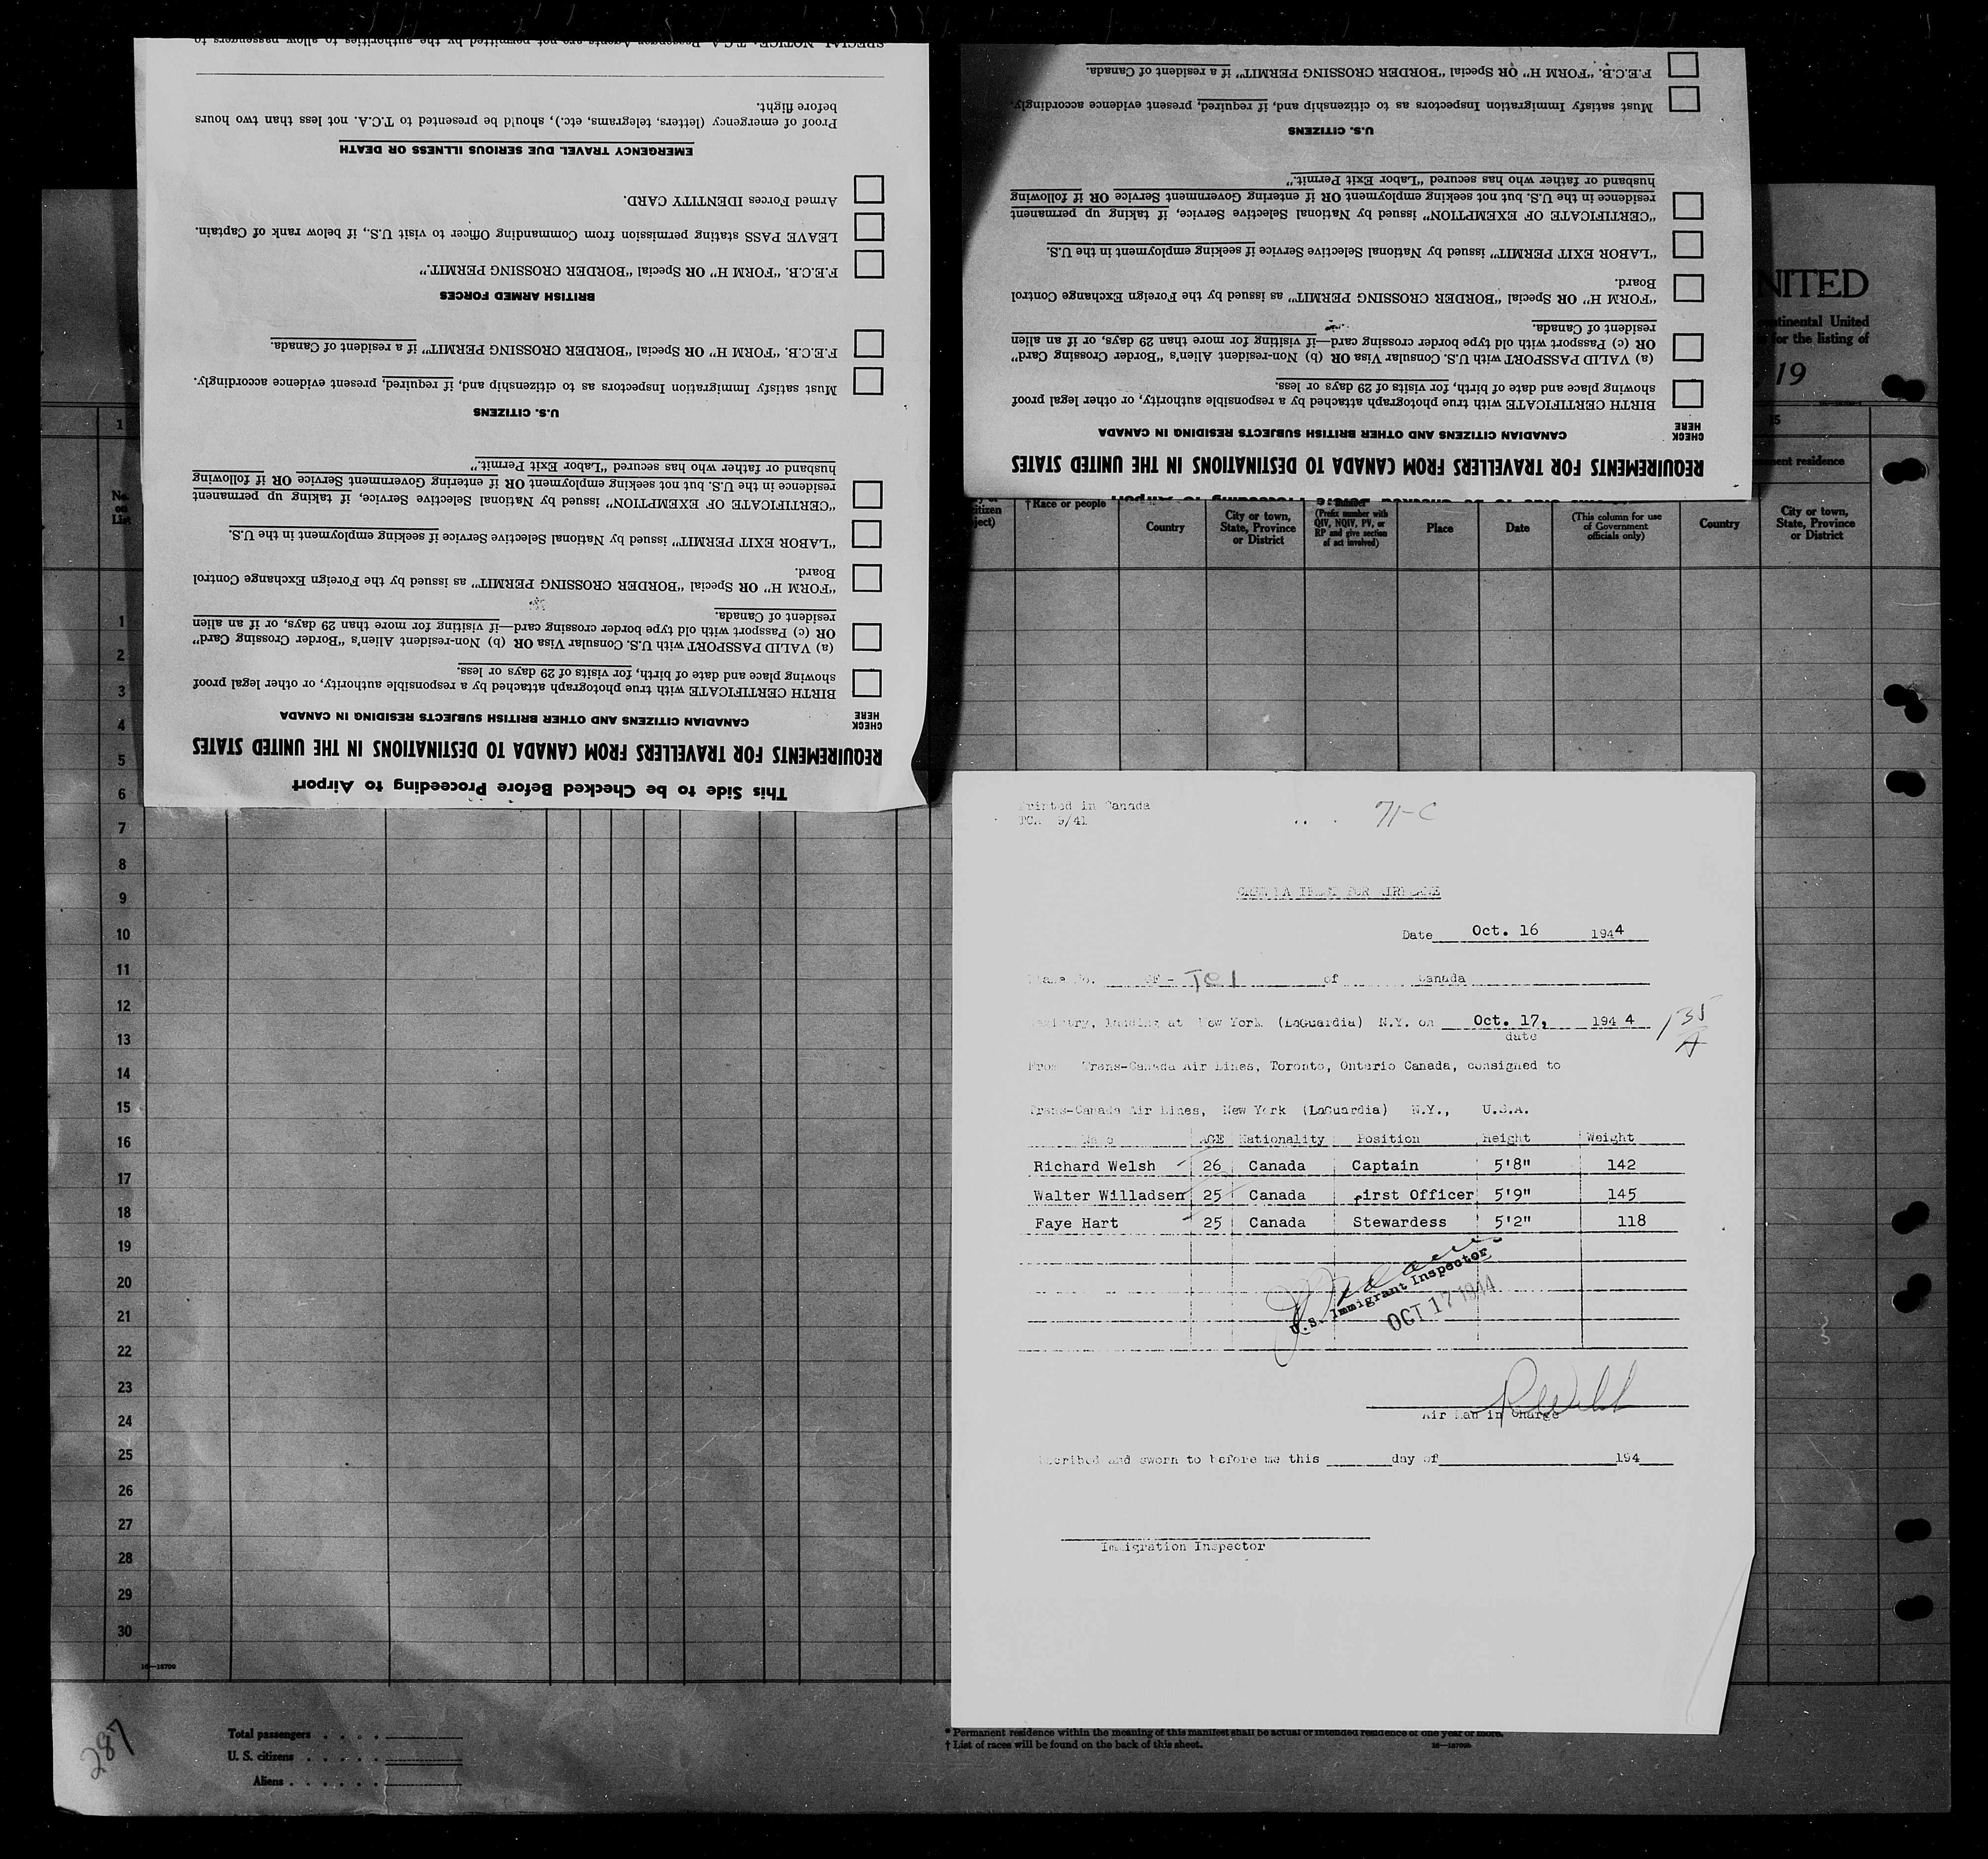 SPECIAL NOTICE: T.C.A. Passenger Agents are not permitted by the authorities to allow passengers to
Proof of emergency (letters, telegrams, etc.), should be presented to T.C.A. not less than two hours
before flight.
EMERGENCY TRAVEL DUE SERIOUS ILLNESS OR DEATH
Armed Forces IDENTITY CARD.
LEAVE PASS stating permission from Commanding Officer to visit U.S., if below rank of Captain.
F.E.C.B. "FORM H" OR Special "BORDER CROSSING PERMIT."
BRITISH ARMED FORCES
F.E.C.B. "FORM H" OR Special "BORDER CROSSING PERMIT" if a resident of Canada.
Must satisfy Immigration Inspectors as to citizenship and, if required, present evidence accordingly.
U.S. CITIZENS
"CERTIFICATE OF EXEMPTION" issued by National Selective Service, if taking up permanent
residence in the U.S. but not seeking employment OR if entering Government Service OR if following
husband or father who has secured "Labor Exit Permit."
"LABOR EXIT PERMIT" issued by National Selective Service if seeking employment in the U.S.
"FORM H" OR Special "BORDER CROSSING PERMIT" as issued by the Foreign Exchange Control
Board.
(a) VALID PASSPORT with U.S. Consular Visa OR (b) Non-resident Alien's "Border Crossing Card"
OR (c) Passport with old type border crossing card—if visiting for more than 29 days, or if an alien
resident of Canada.
BIRTH CERTIFICATE with true photograph attached by a responsible authority, or other legal proof
showing place and date of birth, for visits of 29 days or less.
CHECK HERE
CANADIAN CITIZENS AND OTHER BRITISH SUBJECTS RESIDING IN CANADA
REQUIREMENTS FOR TRAVELLERS FROM CANADA TO DESTINATIONS IN THE UNITED STATES
This Side to be Checked Before Proceeding to Airport
F.E.C.B. "FORM H" OR Special "BORDER CROSSING PERMIT" if a resident of Canada.
Must satisfy Immigration Inspectors as to citizenship and, if required, present evidence accordingly.
U.S. CITIZENS
"CERTIFICATE OF EXEMPTION" issued by National Selective Service, if taking up permanent
residence in the U.S. but not seeking employment OR if entering Government Service OR if following
husband or father who has secured "Labor Exit Permit."
"LABOR EXIT PERMIT" issued by National Selective Service if seeking employment in the U.S.
"FORM H" OR Special "BORDER CROSSING PERMIT" as issued by the Foreign Exchange Control
Board.
(a) VALID PASSPORT with U.S. Consular Visa OR (b) Non-resident Alien's "Border Crossing Card"
OR (c) Passport with old type border crossing card—if visiting for more than 29 days, or if an alien
resident of Canada.
BIRTH CERTIFICATE with true photograph attached by a responsible authority, or other legal proof
showing place and date of birth, for visits of 29 days or less.
CHECK HERE
CANADIAN CITIZENS AND OTHER BRITISH SUBJECTS RESIDING IN CANADA
REQUIREMENTS FOR TRAVELLERS FROM CANADA TO DESTINATIONS IN THE UNITED STATES
NITED
tinental United
for the listing of
, 19
1
15
residence
No. on List
†Race or people
Country
City or town, State, Province or District
(Prefix number with QIV, NQIV, PV, or RP and give section of act involved)
Place
Date
(This column for use of Government officials only)
Country
City or town, State, Province or District
1
2
3
4
5
6
7
8
9
10
11
12
13
14
15
16
17
18
19
20
21
22
23
24
25
26
27
28
29
30
16—18709
Printed in Canada
TCA 9/41
71-C
CREW MANIFEST FOR AIRPLANE
Date Oct. 16 1944
Plane No. CF- TCI of Canada
Registry, landing at New York (LaGuardia) N.Y. on Oct. 17, 1944
date
135
A
From Trans-Canada Air Lines, Toronto, Ontario Canada, consigned to
Trans-Canada Air Lines, New York (LaGuardia) N.Y., U.S.A.
Name AGE Nationality Position Height Weight
Richard Welsh 26 Canada Captain 5'8" 142
Walter Willadsen 25 Canada First Officer 5'9" 145
Faye Hart 25 Canada Stewardess 5'2" 118
U.S. Immigrant Inspector
OCT 17 1944
Air Man in Charge
scribed and sworn to before me this day of 194
Immigration Inspector
287
Total passengers . . . .
U. S. citizens . . . . .
Aliens . . . . . .
* Permanent residence within the meaning of this manifest shall be actual or intended residence of one year or more.
† List of races will be found on the back of this sheet.